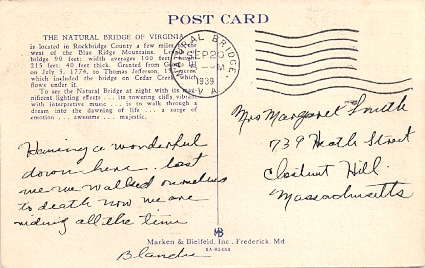 POST CARD
THE NATURAL BRIDGE OF VIRGINIA
is located in Rockbridge County a few miles to the
west of the Blue Ridge Mountains. Length of
bridge 90 feet; width averages 100 feet; height
215 feet; 40 feet thick. Granted from George III
on July 5, 1774, to Thomas Jefferson, 157 acres
which included the bridge on Cedar Creek which
flows under it.
To see the Natural Bridge at night with its mag-
nificent lighting effects . . . its towering cliffs vibrant
with interpretive music . . . is to walk through a
dream into the dawning of life . . . a surge of
emotion . . . awesome . . . majestic.
NATURAL BRIDGE,
SEP 20
M
1939
VA.
Having a wonderful
down here. Last
we walked ourselves
to death now we are
riding all the time
Blanche
Mrs Margaret Smith
739 Heath Street
Chestnut Hill.
Massachusetts
MB
Marken & Bielfeld, Inc., Frederick, Md